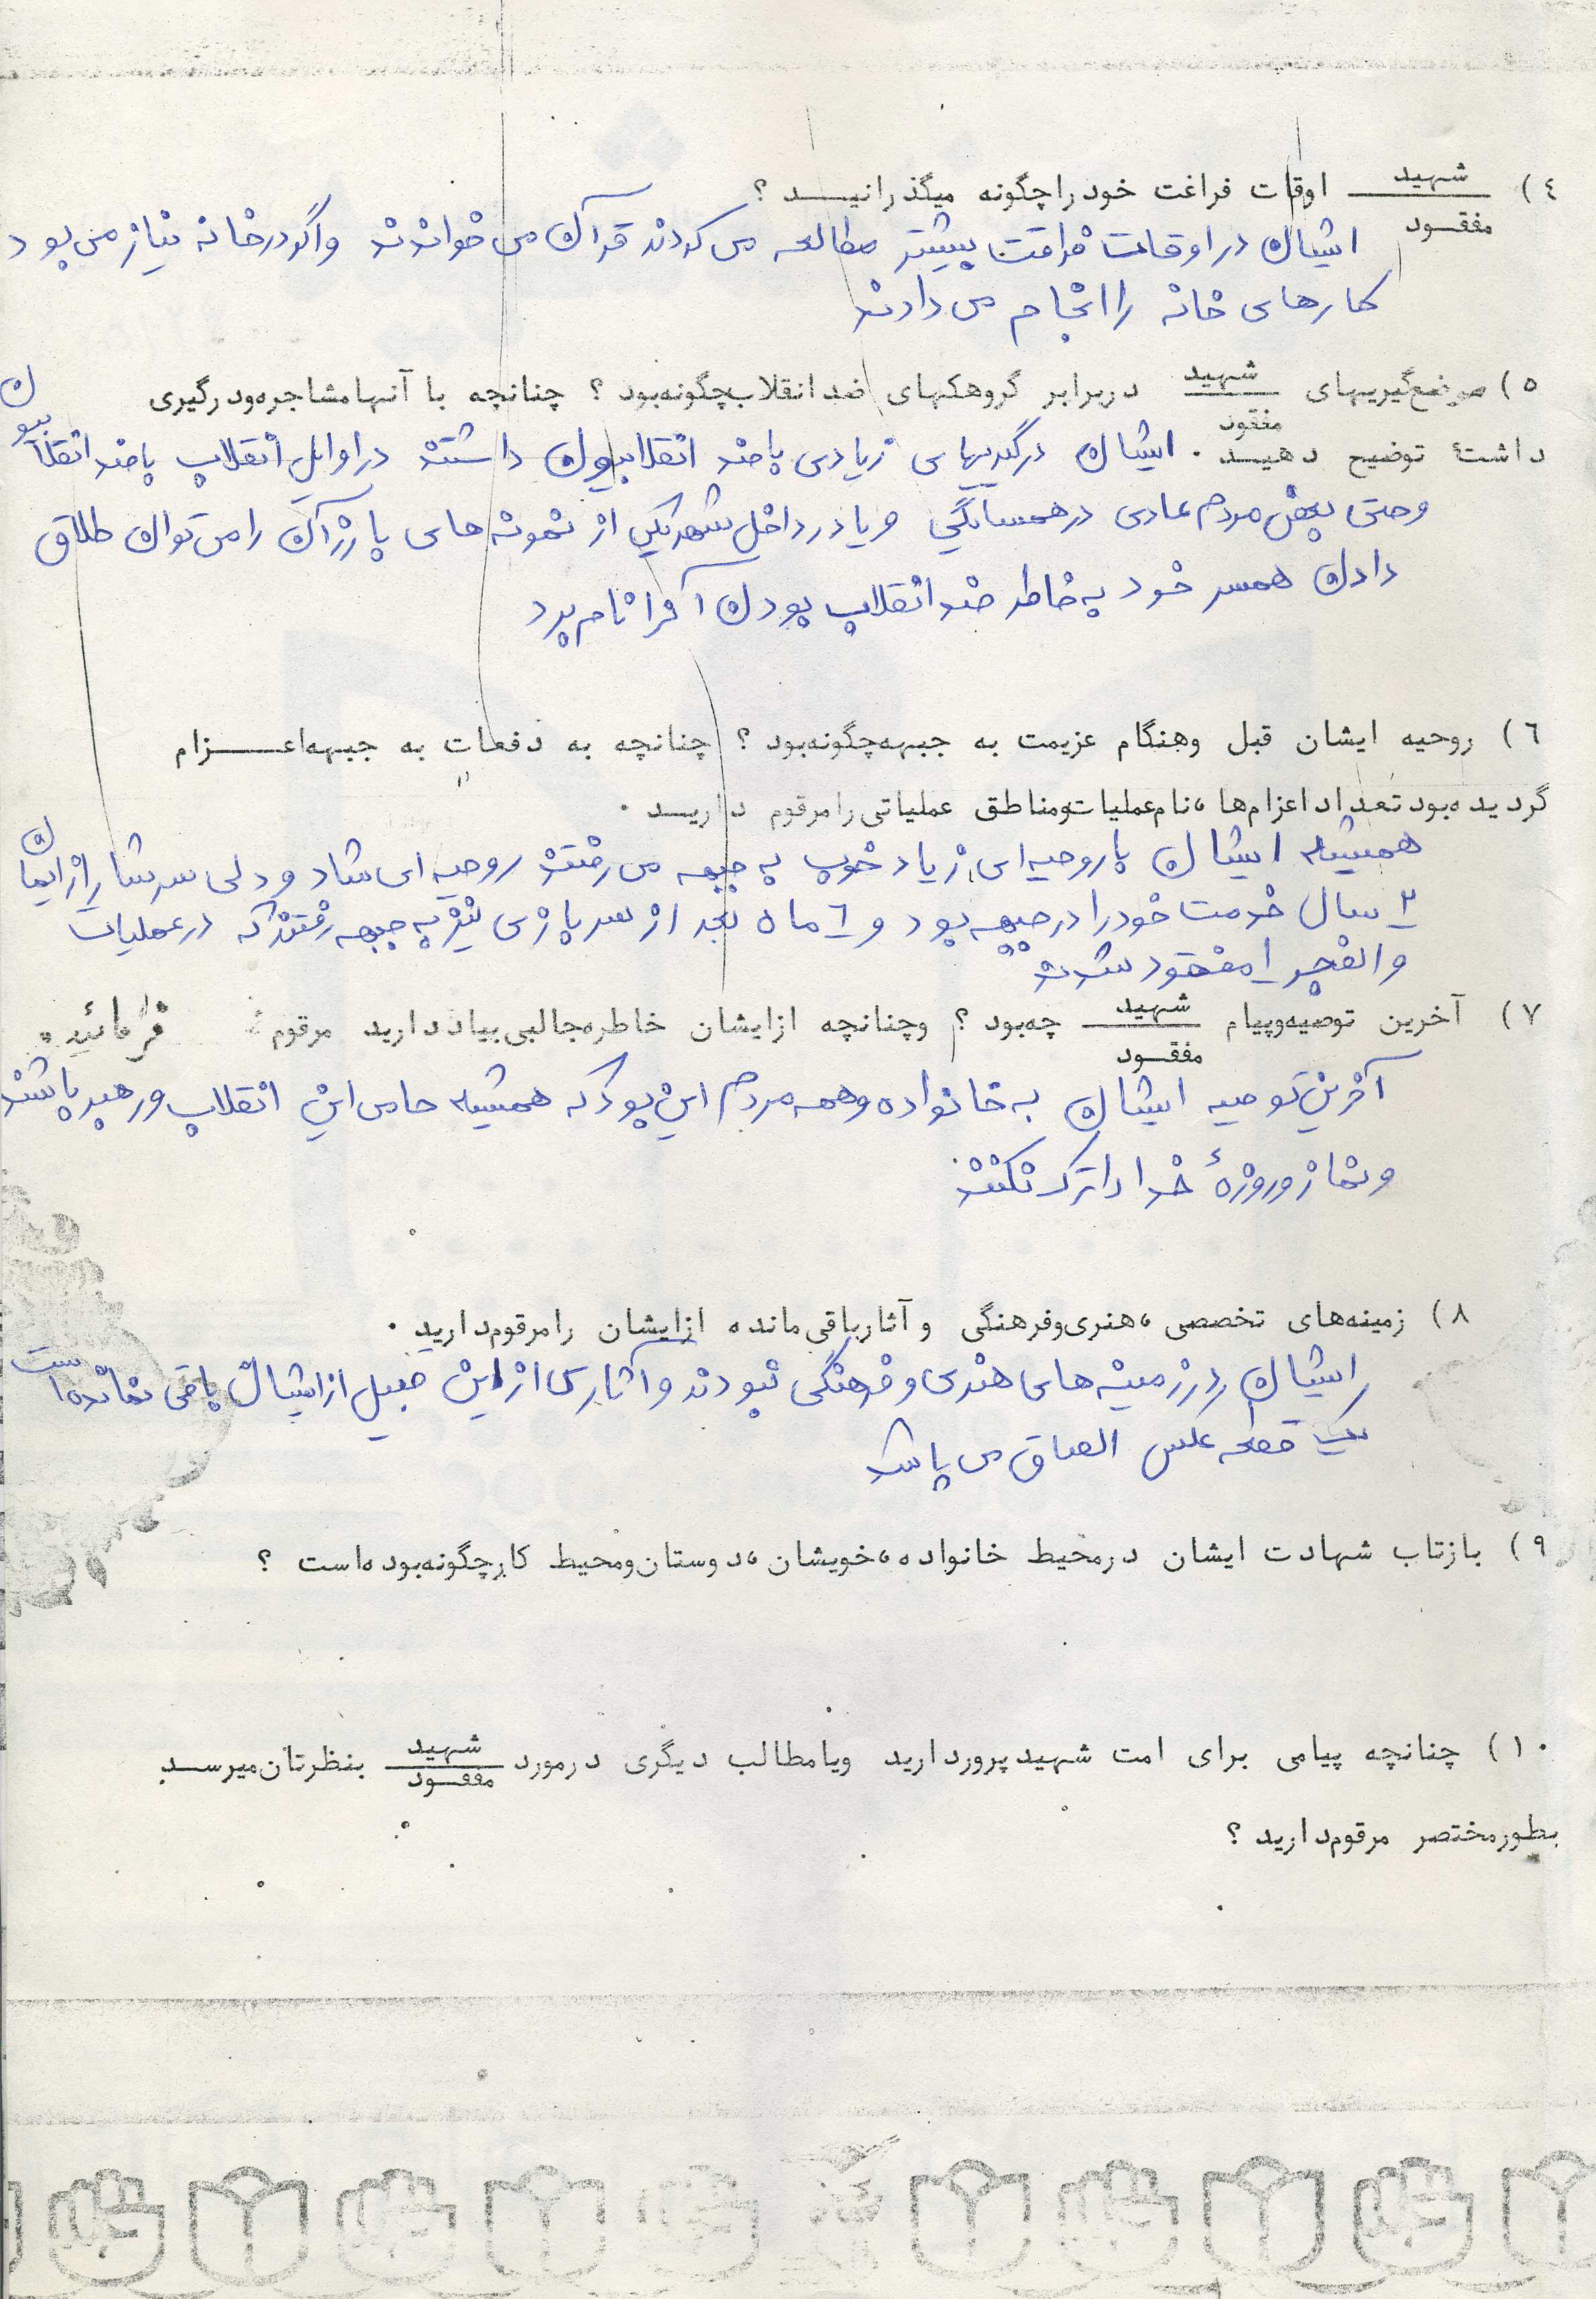 ٤) شهید اوقات فراغت خود را چگونه میگذرانید ؟
مفقود
ایشان در اوقات فراقت بیشتر مطالعه می کردند قرآن می خواندند و اگر در خانه نیاز می بود
کارهای خانه را انجام می دادند
٥) موضع‌گیریهای شهید دربرابر گروهکهای ضد انقلاب چگونه بود ؟ چنانچه با آنها مشاجره و درگیری
مفقود
داشته توضیح دهید . ایشان درگیریهای زیادی با ضد انقلابیون داشتند در اوایل انقلاب با ضد انقلابیون
و حتی بعضی مردم عادی در همسایگی و یا در داخل شهر یکی از نمونه های بارز آن را می توان طلاق
دادن همسر خود به خاطر ضد انقلاب بودن آنرا نام برد
٦) روحیه ایشان قبل وهنگام عزیمت به جبهه چگونه بود ؟ چنانچه به دفعات به جبهه اعزام
گردیده بود تعداد اعزام ها ، نام عملیات و مناطق عملیاتی را مرقوم دارید .
همیشه ایشان با روحیه ای زیاد خوب به جبهه می رفتند روحیه ای شاد و دلی سرشار از ایمان
٢ سال خدمت خود را در جبهه بود و ٦ ماه بعد از سربازی نیز به جبهه رفتند که در عملیات
والفجر ١ مفقود شدند
٧) آخرین توصیه و پیام شهید چه بود ؟ و چنانچه از ایشان خاطره جالبی بیاد دارید مرقوم فرمائید .
مفقود
آخرین توصیه ایشان به خانواده و همه مردم این بود که همیشه حامی این انقلاب و رهبر باشند
و نماز و روزهٔ خدا را ترک نکنند
٨) زمینه‌های تخصصی ، هنری و فرهنگی و آثار باقی مانده از ایشان را مرقوم دارید .
ایشان در زمینه های هنری و فرهنگی نبودند و آثاری از این قبیل از ایشان باقی نمانده است
یک قطعه عکس الصاق می باشد
٩) بازتاب شهادت ایشان در محیط خانواده ، خویشان ، دوستان و محیط کار چگونه بوده است ؟
١٠) چنانچه پیامی برای امت شهید پرور دارید و یا مطالب دیگری در مورد شهید بنظرتان میرسد
مفقود
بطور مختصر مرقوم دارید ؟